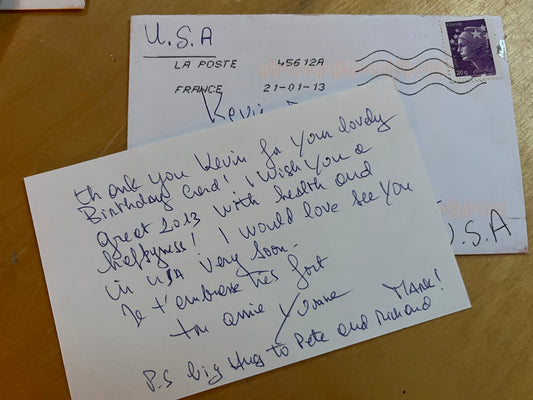 U.S.A
LA POSTE 45612A
FRANCE 21-01-13
Kevin
Monde
20g
U.S.A
thank you Kevin for your lovely
Birthday Card! I wish you a
great 2013 with health and
happyness! I would love see you
in USA very soon -
Je t'embrasse très fort
ton amie Yvonne
Thanks!
P.S big Hugs to Pete and Richard